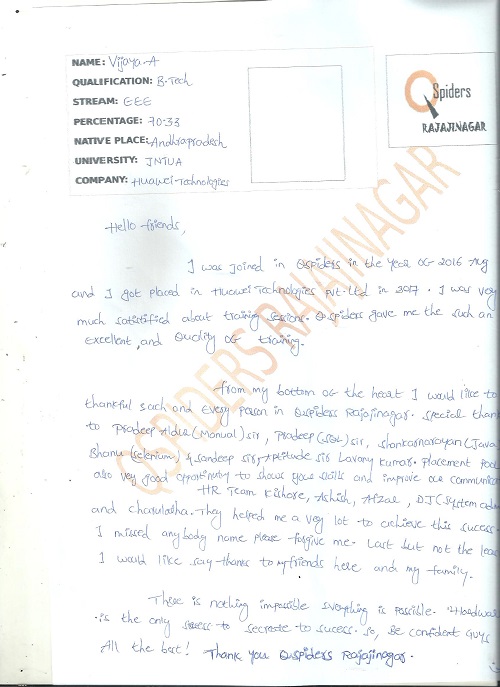 NAME: Vijaya-A
QUALIFICATION: B.Tech
STREAM: EEE
PERCENTAGE: 70.33
NATIVE PLACE: Andhrapradesh
UNIVERSITY: JNTUA
COMPANY: Huawei Technologies
QSpiders
RAJAJINAGAR
QSPIDERS RAJAJINAGAR
Hello friends,
I was joined in Qspiders in the year OG 2016 Aug
and I got placed in Huewei Technologies pvt.ltd in 2017. I was very
much satistified about training sessions. Qspiders gave me the such an
Excellent, and Quality OG training.
from my bottom OG the heart I would like to
thankful each and Every person in Qspiders Rajajinagar. special than
to Pradeep (Manual) sir, pradeep (SQL) sir, shankarnarayan (Java
Bhanu (selenium) & sandeep sir, Aptitude sir Lavany Kumar. Placement
also very good oppatinuty to shows your skills and improve our communica
HR Team Kishore, Ashish, Afzal, DJ (System adm
and charulatha. They helped me a very lot to achieve this success.
I missed anybody name please forgive me. Last but not the leas
I would like say thanks to my friends here and my family.
There is nothing impossible everything is possible. Hardwor
is the only to secreate to sucess. so, Be confident Guys
All the best! Thank you Qspiders Rajajinagar.